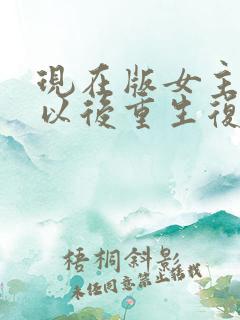 現在版女主
以後重生復
梧桐斜影
未经同意禁止转载